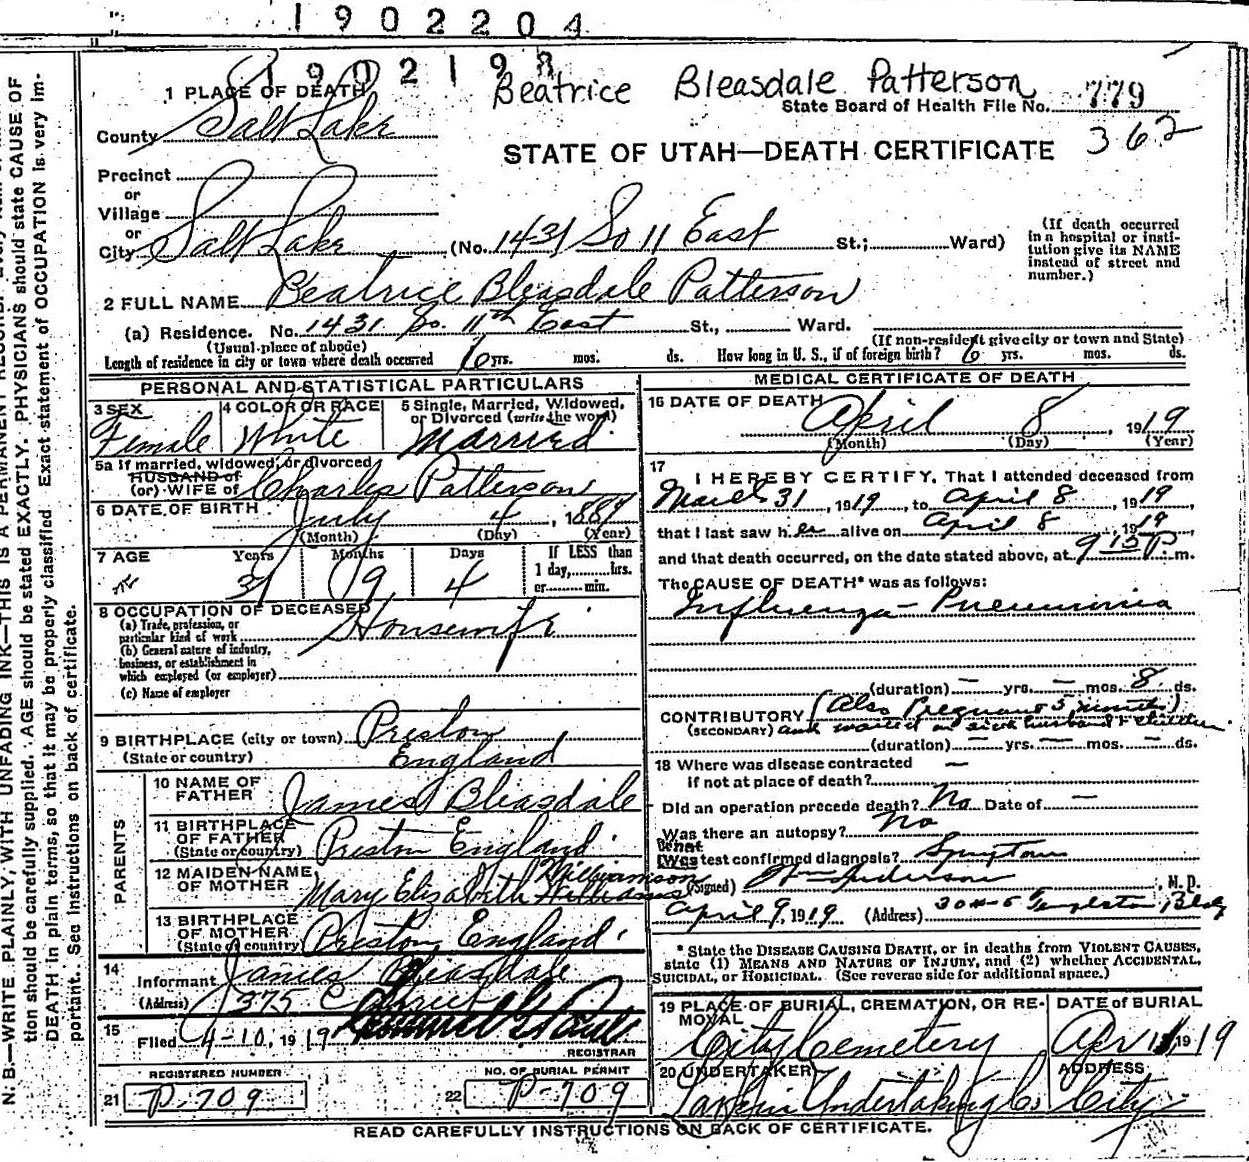 1902204
1902198
Beatrice Bleasdale Patterson
1 PLACE OF DEATH
State Board of Health File No. 779
County Salt Lake
362
STATE OF UTAH—DEATH CERTIFICATE
Precinct
or
Village
or
City Salt Lake (No. 1431 So 11 East St.; Ward)
(If death occurred in a hospital or insti-
tution give its NAME
instead of street and
number.)
2 FULL NAME Beatrice Bleasdale Patterson
(a) Residence. No. 1431 So. 11th East St., Ward.
(Usual place of abode) (If non-resident give city or town and State)
Length of residence in city or town where death occurred 6 yrs. mos. ds. How long in U. S., if of foreign birth? 6 yrs. mos. ds.
PERSONAL AND STATISTICAL PARTICULARS
3 SEX 4 COLOR OR RACE 5 Single, Married, Widowed,
or Divorced (write the word)
Female White Married
5a If married, widowed, or divorced
HUSBAND of
(or) WIFE of Charles Patterson
6 DATE OF BIRTH July 4, 1889
(Month) (Day) (Year)
7 AGE Years Months Days If LESS than
1 day, hrs.
or min.
9 4
8 OCCUPATION OF DECEASED
(a) Trade, profession, or
particular kind of work Housewife
(b) General nature of industry,
business, or establishment in
which employed (or employer)
(c) Name of employer
9 BIRTHPLACE (city or town) Preston
(State or country) England
PARENTS
10 NAME OF
FATHER James Bleasdale
11 BIRTHPLACE
OF FATHER
(State or country) Preston England
12 MAIDEN NAME
OF MOTHER Mary Elizabeth Williams Williamson
13 BIRTHPLACE
OF MOTHER
(State or country) Preston, England
14
Informant James Bleasdale
(Address) 375 C Street
15
Filed 4-10, 1919
REGISTRAR
REGISTERED NUMBER NO. OF BURIAL PERMIT
21 P-709 22 P-709
MEDICAL CERTIFICATE OF DEATH
16 DATE OF DEATH April 8, 1919
(Month) (Day) (Year)
17
I HEREBY CERTIFY, That I attended deceased from
March 31, 1919, to April 8, 1919
that I last saw her alive on April 8, 1919
and that death occurred, on the date stated above, at 9 15 P m.
The CAUSE OF DEATH* was as follows:
Influenza - Pneumonia
(duration) — yrs. — mos. 8 ds.
CONTRIBUTORY (Also Pregnant 5 months)
(SECONDARY) and waited on sick husband & children
(duration) — yrs. — mos. — ds.
18 Where was disease contracted
if not at place of death? —
Did an operation precede death? No Date of —
Was there an autopsy? No
What
Was test confirmed diagnosis? Symptoms
(Signed) Wm Anderson, M. D.
April 9, 1919 (Address) 304-5 Templeton Bldg
* State the DISEASE CAUSING DEATH, or in deaths from VIOLENT CAUSES,
state (1) MEANS AND NATURE OF INJURY, and (2) whether ACCIDENTAL,
SUICIDAL, or HOMICIDAL. (See reverse side for additional space.)
19 PLACE OF BURIAL, CREMATION, OR RE-
MOVAL DATE of BURIAL
City Cemetery Apr 11 1919
20 UNDERTAKER ADDRESS
Larkin Undertaking Co City
READ CAREFULLY INSTRUCTIONS ON BACK OF CERTIFICATE.
N. B—WRITE PLAINLY, WITH UNFADING INK—THIS IS A PERMANENT RECORD.
tion should be carefully supplied. AGE should be stated EXACTLY. PHYSICIANS should state CAUSE OF
DEATH in plain terms, so that it may be properly classified. Exact statement of OCCUPATION is very im-
portant. See instructions on back of certificate.